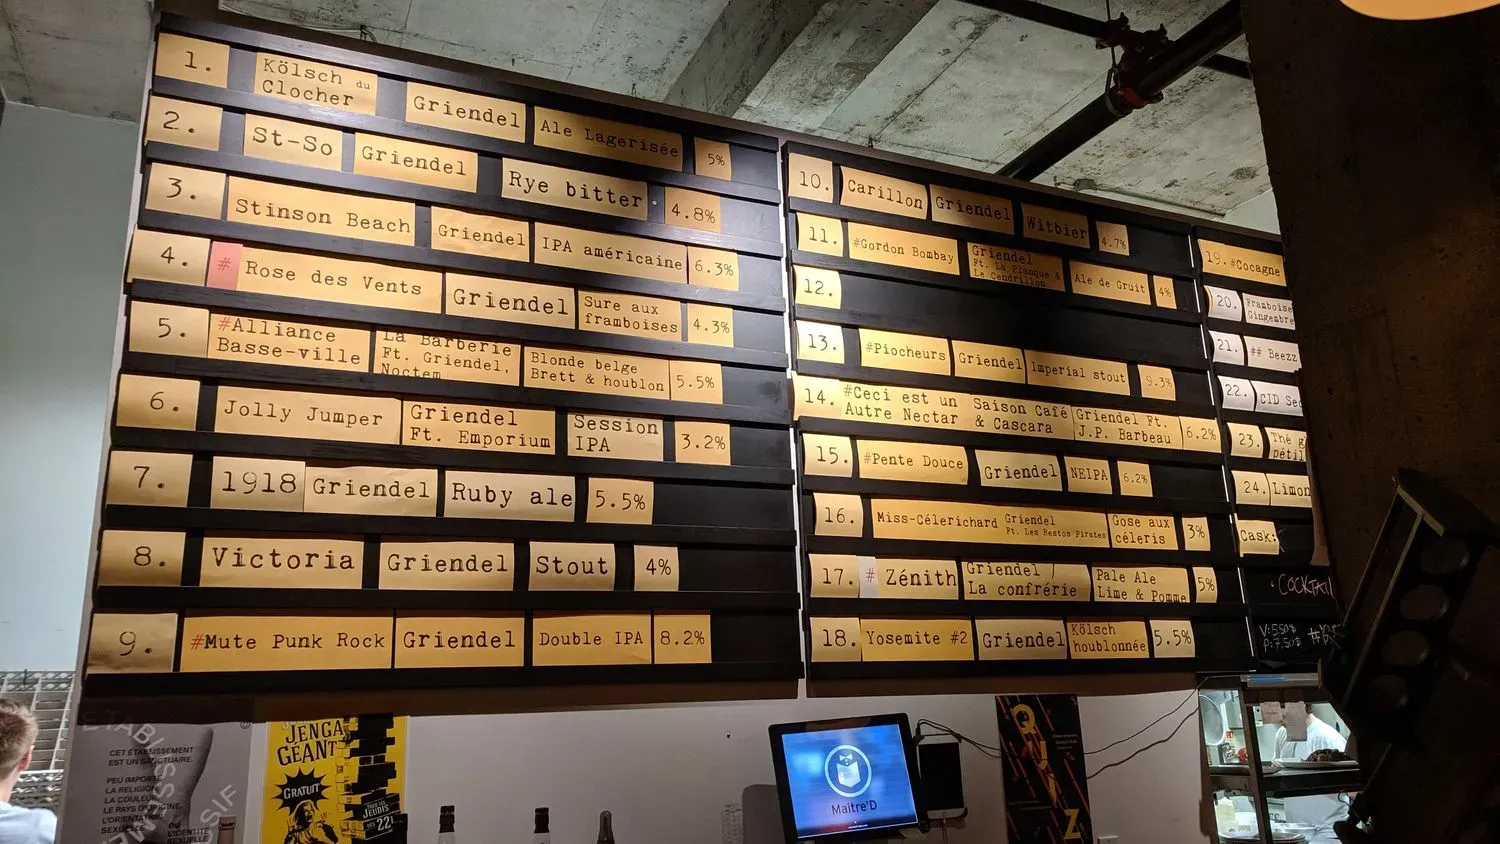 1. Kölsch du Clocher Griendel Ale Lagerisée 5%
2. St-So Griendel Rye bitter 4.8%
3. Stinson Beach Griendel IPA américaine 6.3%
4. # Rose des Vents Griendel Sure aux framboises 4.3%
5. #Alliance Basse-ville La Barberie Ft. Griendel, Noctem Blonde belge Brett & houblon 5.5%
6. Jolly Jumper Griendel Ft. Emporium Session IPA 3.2%
7. 1918 Griendel Ruby ale 5.5%
8. Victoria Griendel Stout 4%
9. #Mute Punk Rock Griendel Double IPA 8.2%
10. Carillon Griendel Witbier 4.7%
11. #Gordon Bombay Griendel Ft. La Planque & Le Cendrillon Ale de Gruit 4%
12.
13. #Piocheurs Griendel Imperial stout 9.3%
14. #Ceci est un Autre Nectar Saison Café & Cascara Griendel Ft. J.P. Barbeau 6.2%
15. #Pente Douce Griendel NEIPA 6.2%
16. Miss-Célerichard Griendel Ft. Les Restos Pirates Gose aux céleris 3%
17. # Zénith Griendel / La confrérie Pale Ale Lime & Pomme 5%
18. Yosemite #2 Griendel Kölsch houblonnée 5.5%
19. #Cocagne
20. Framboise Gingembre
21. ## Beezz
22. CID
23. Thé pétil
24. Limon
Cask:
COCKTAIL
V:5.50$
P:7.50$
CET ÉTABLISSEMENT
EST UN SANCTUAIRE.
PEU IMPORTE
LA RELIGION
LA COULEUR,
LE PAYS D'ORIGINE,
L'ORIENTATION
SEXUELLE OU
L'IDENTITÉ
SEXUELLE
JENGA
GÉANT
GRATUIT
TOUS LES
JEUDIS
DÈS 22!
Maitre'D